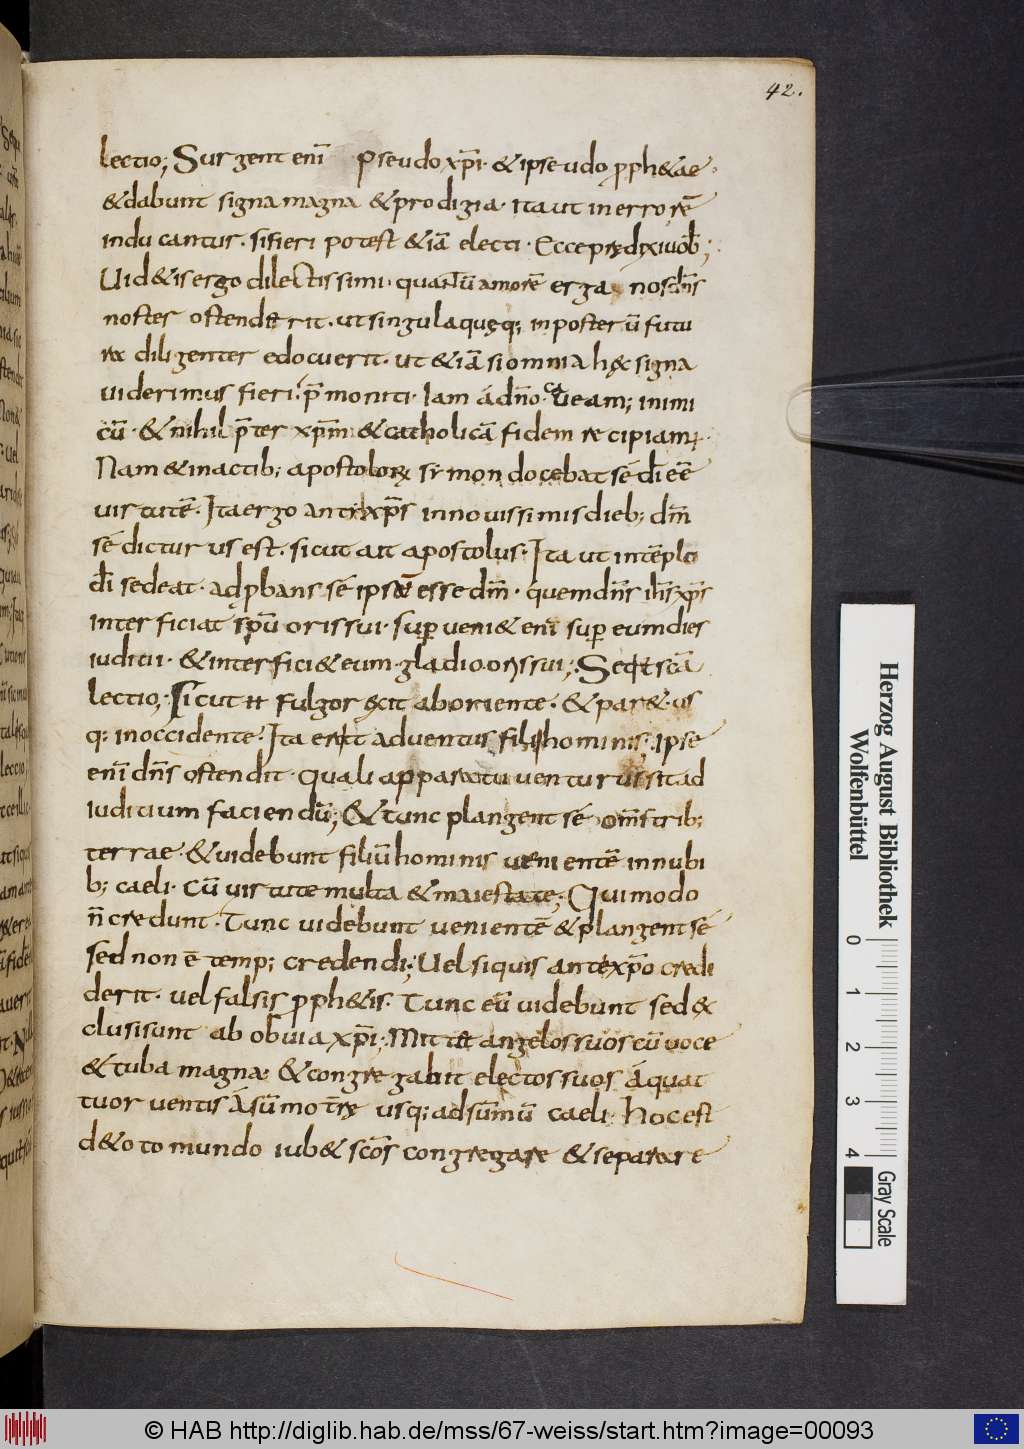 42.
lectio; Surgent enī pseudo xp̄i · & ipseudo ꝓph&ae ·
& dabunt signa magna & prodigia · ita ut in errorē
inducantur · si fieri potest & iā electi · Ecce prędixi uob̄;
Uid&is ergo dilectissimi · quantū amorē erga nos dn̄s
noster ostenderit · ut singula quęq; in posterū futu
rae diligenter edocuerit · ut & iā si omnia hęc signa
uiderimus fieri · p̄moniti · Iam ád dn̄o ueam; inimi
cū · & nihil p̄ter xp̄m & catholicā fidem recipiam;
Nam & in actib; apostolorū symon docebat sé dī eē
uirtutē · Ita ergo antixp̄s in nouissimis dieb; dm̄
sé dicturus est · sicut ait apostolus · Ita ut in tēplo
dī sedeat · adp̱bans sé ipsū esse dm̄ · quem dn̄s ih̄s xp̄s
interficiat spū oris sui · suꝑueni& enī suꝑ eum dies
iuditii · & interfici& eum gladio oris sui; Seq̄t scā
lectio; Sicut fulgor exit ab oriente · & par& · us
q; in occidente · Ita erit aduentus filii hominis; Ipse
enī dn̄s ostendit · quali apparatu uenturus sit ad
iuditium faciendū; & tunc plangent sé om̄s trib;
terrae · & uidebunt filiū hominis uenientē in nubi
b; caeli · Cū uirtute multa & maiestate; Qui modo
n̄ credunt · Tunc uidebunt uenientē & plangent sé
sed non ē temp; credendi; Uel si quis antexp̄o credi
derit · uel falsis ꝓph&is · Tunc eū uidebunt sed ex
clusi sunt ab obuia xp̄i; Mittet angelos suos cū uoce
& tuba magna · & congregabit electos suos á quat
tuor ventis Á sūmo terrę usq; ad sūmū caeli · hoc est
d& oto mundo iub& scōs congregare & separare
Herzog August Bibliothek
Wolfenbüttel
0 1 2 3 4
Gray Scale
© HAB http://diglib.hab.de/mss/67-weiss/start.htm?image=00093